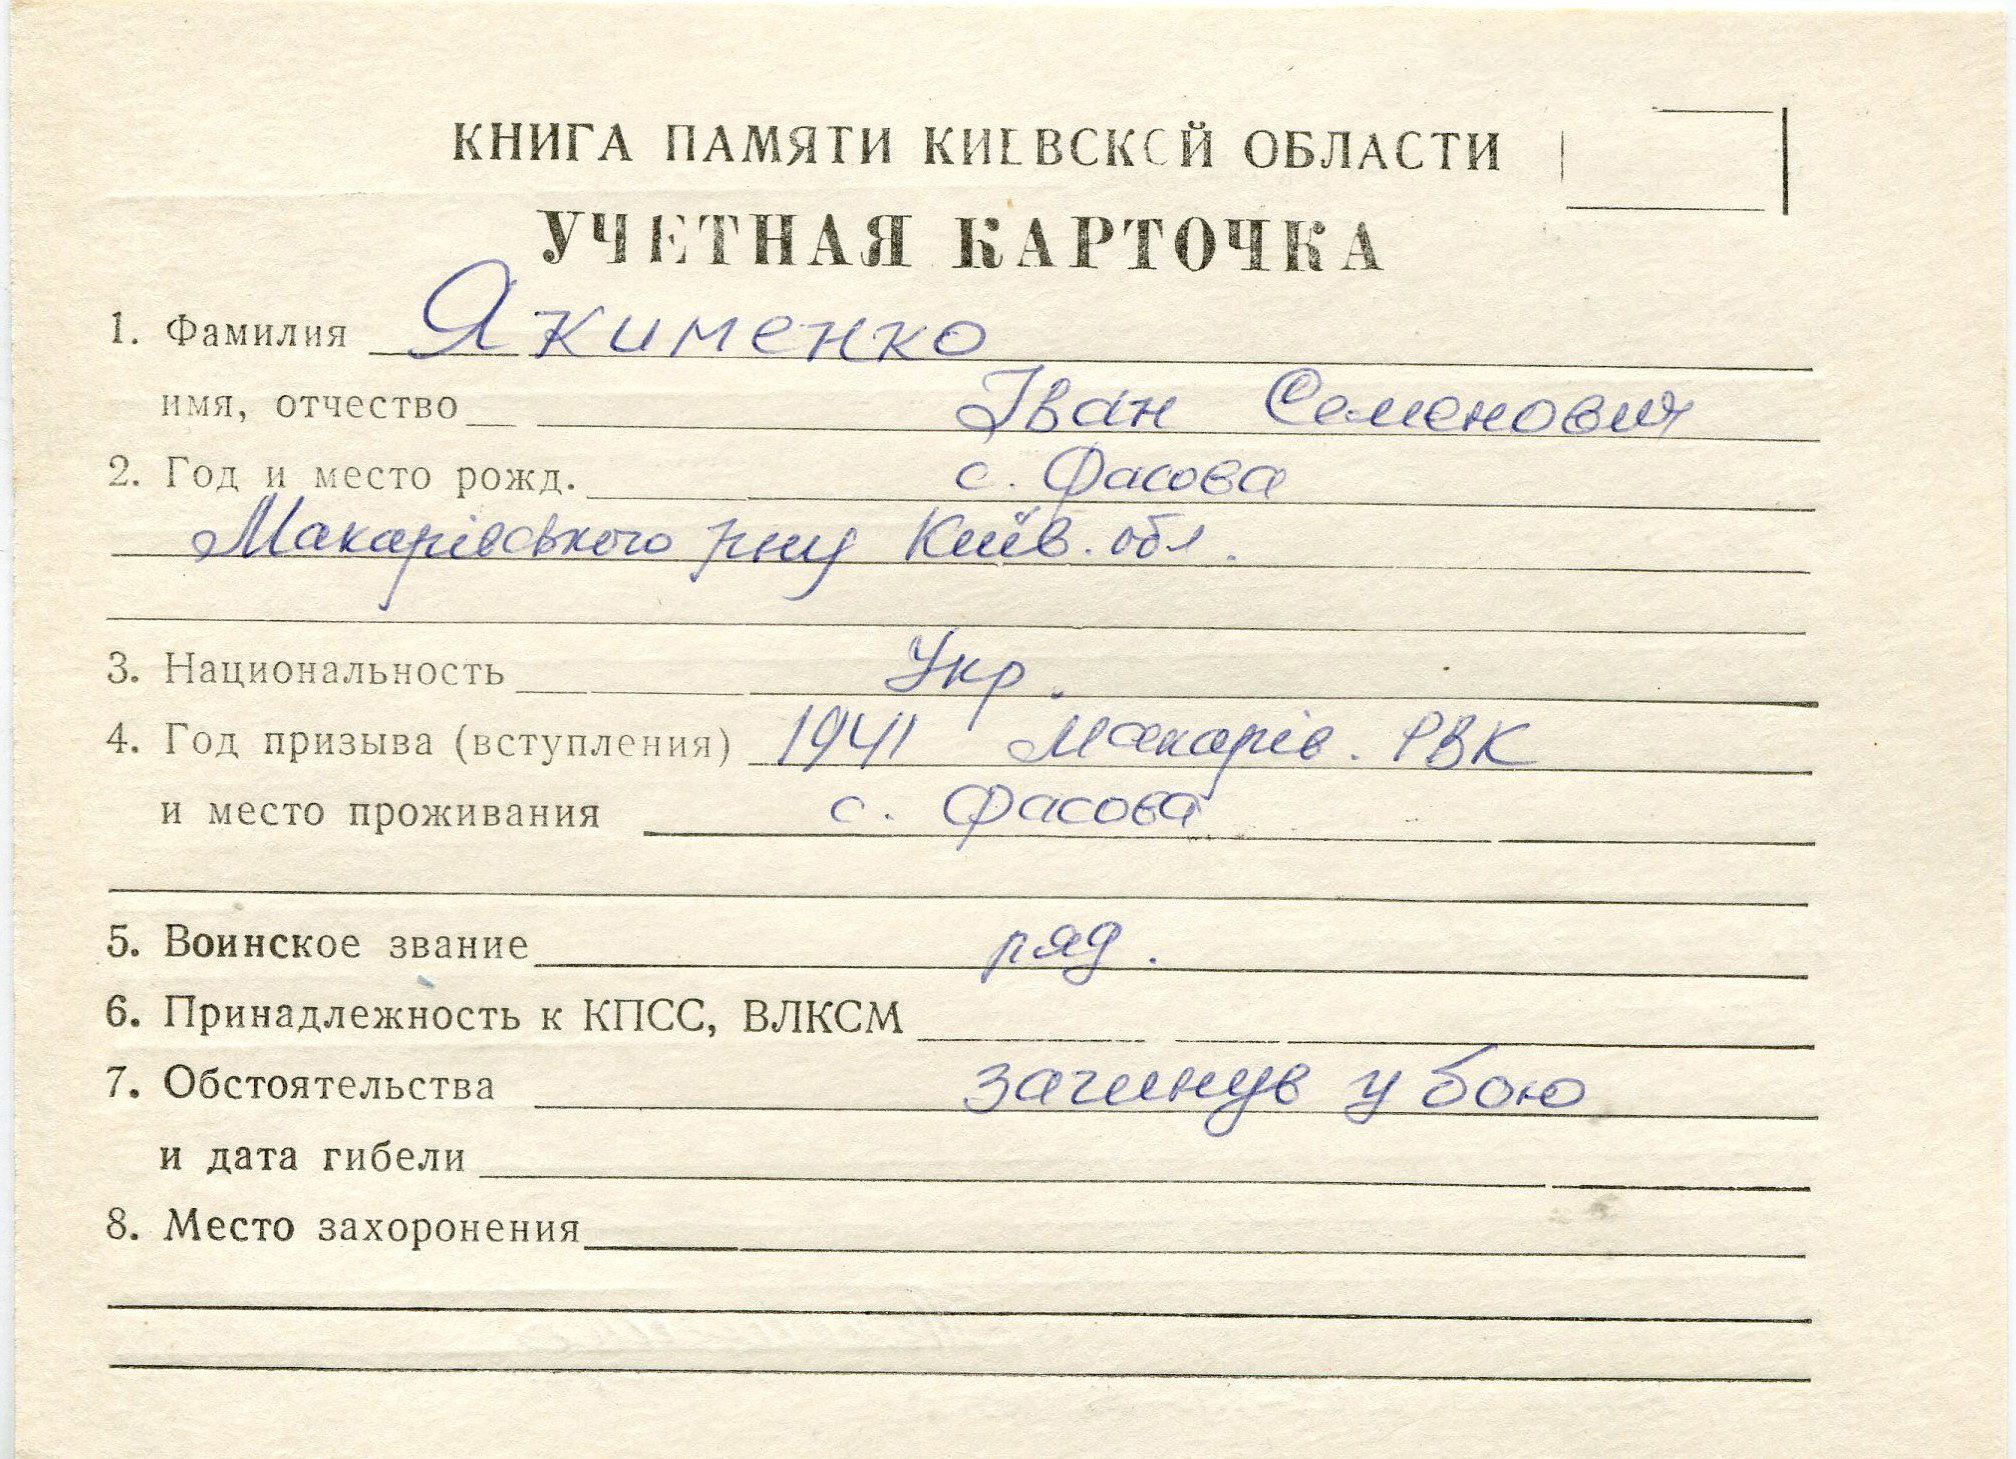 КНИГА ПАМЯТИ КИЕВСКОЙ ОБЛАСТИ
УЧЕТНАЯ КАРТОЧКА
1. Фамилия Якименко
имя, отчество Іван Семенович
2. Год и место рожд. с. Фасова
Макарівського рну Київ. обл.
3. Национальность Укр.
4. Год призыва (вступления) 1941 Макарів. РВК
и место проживания с. Фасова
5. Воинское звание ряд.
6. Принадлежность к КПСС, ВЛКСМ
7. Обстоятельства загинув у бою
и дата гибели
8. Место захоронения